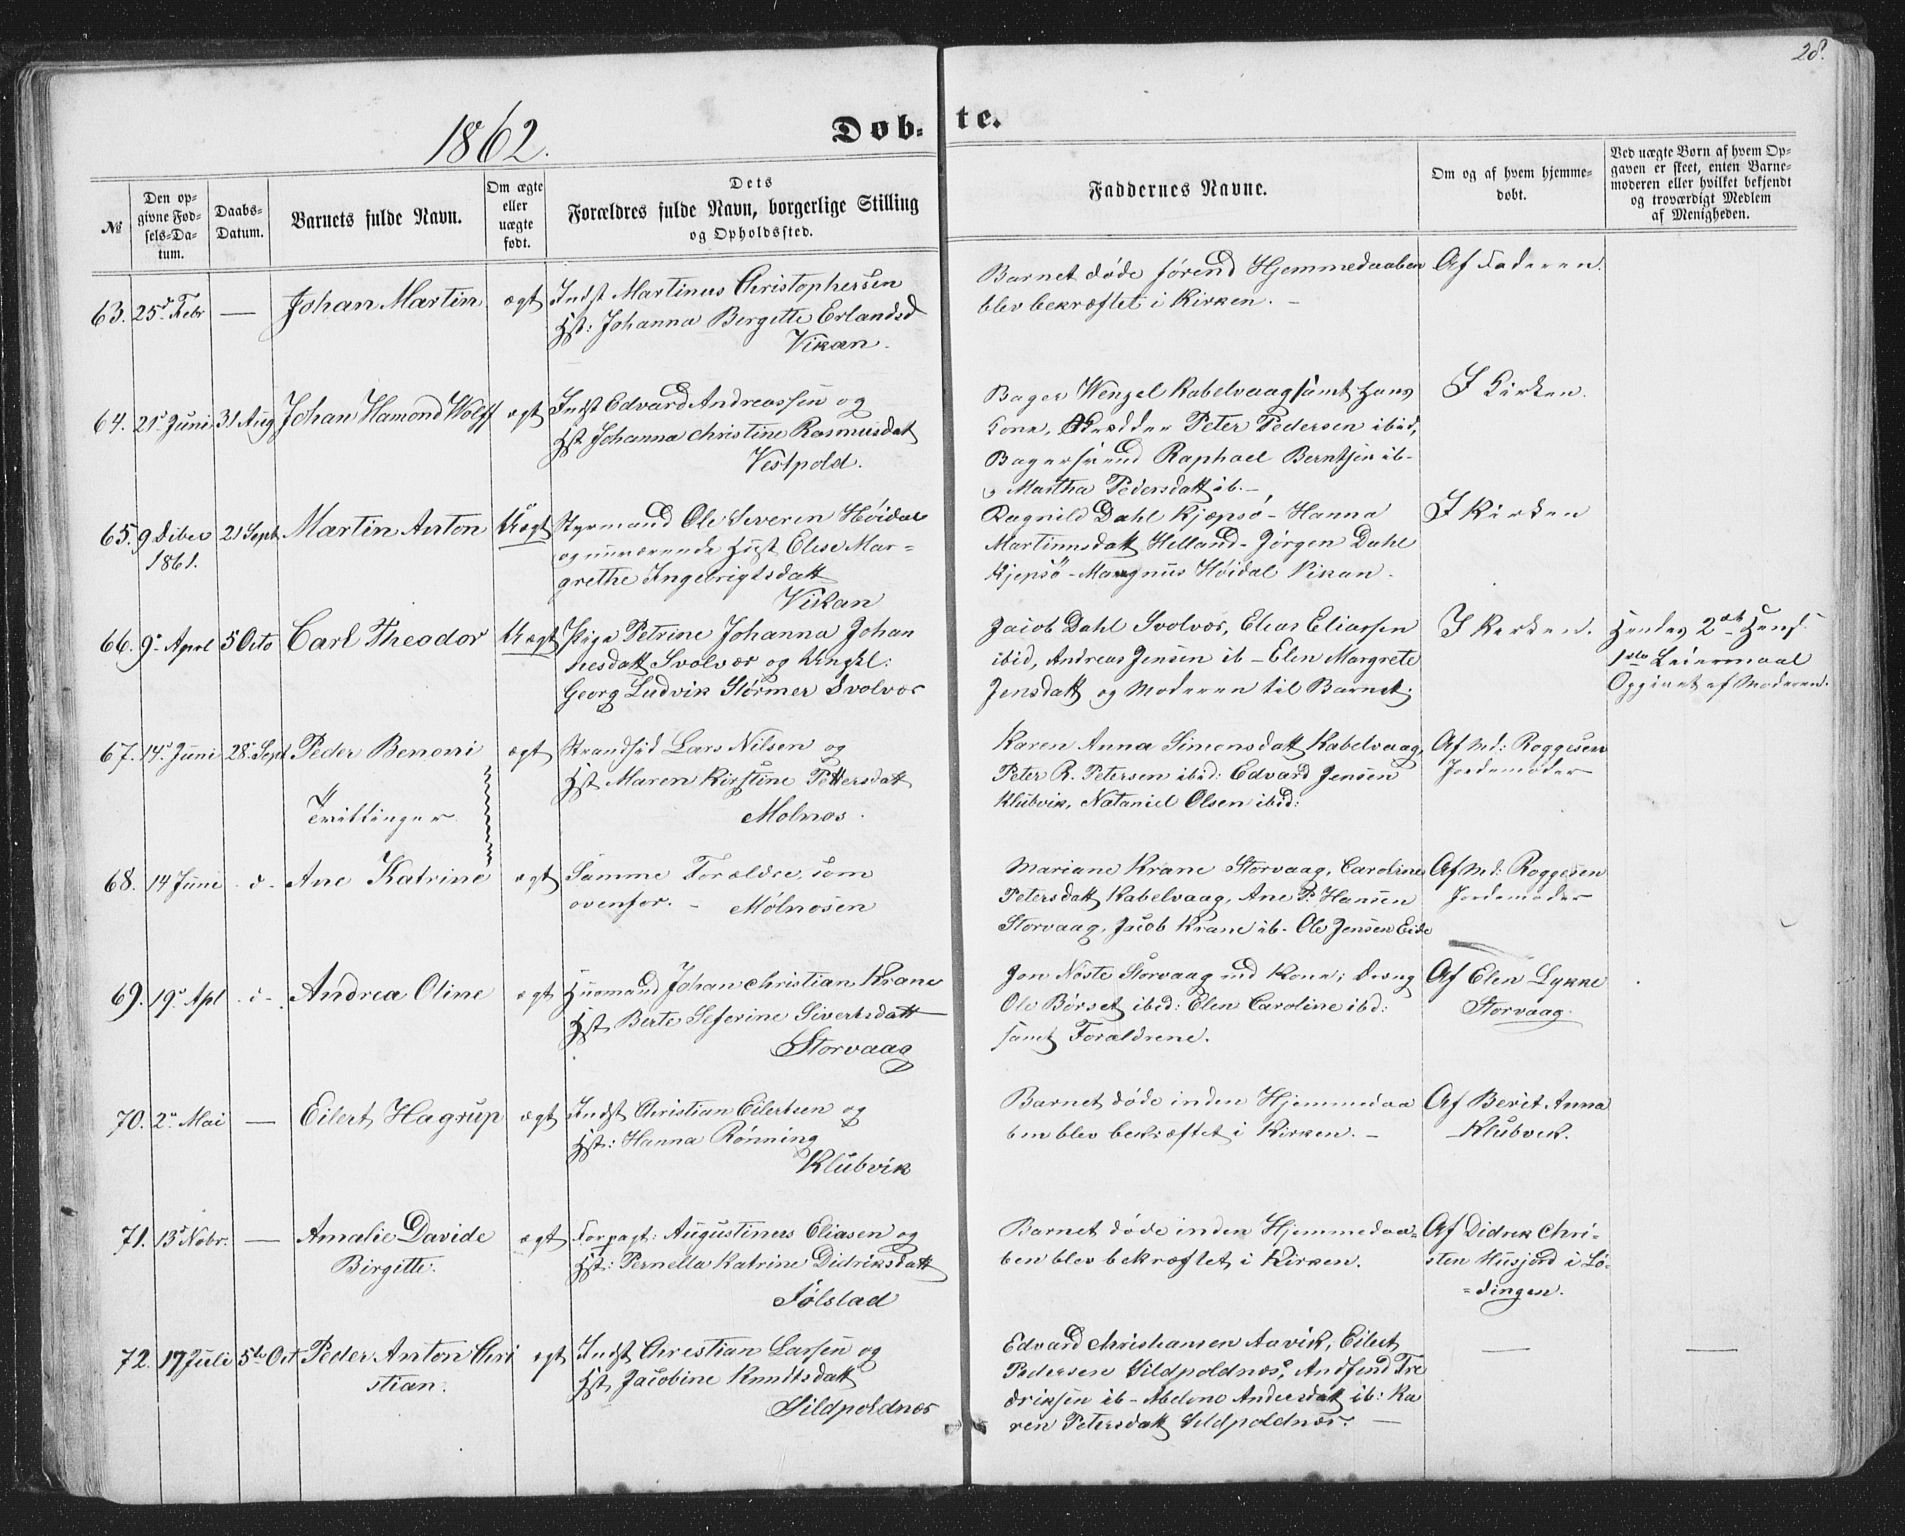 28.
1862.
Døb-te.
№
Den op-
givne Fød-
sels-Da-
tum.
Daabs-
Datum.
Barnets fulde Navn.
Om ægte
eller
uægte
født.
Dets
Forældres fulde Navn, borgerlige Stilling
og Opholdssted.
Faddernes Navne.
Om og af hvem hjemme-
døbt.
Ved uægte Børn af hvem Op-
gaven er skeet, enten Barne-
moderen eller hvilket bekjendt
og troværdigt Medlem
af Menigheden.
63. 25de Febr — Johan Martin ægt
Indst Martinus Christophersen
Hst: Johanna Bergitte Erlandsd
Vikan.
Barnet døde førend Hjemmedaaben
blev bekræftet i Kirken. —
Af Faderen.
64. 21de Juni 31 Aug Johan Hamond Wolff ægt
Indst Edvard Andreassen og
Hst Johanna Christine Rasmusdat
Vestpold.
Bager Wenzel Kabelvaag samt Hans
Kone, Skredder Peter Pedersen ibid,
Bagersvend Raphael Berntsen ib-
og Martha Pedersdatt ib. —
I Kirken.
65. 9 Dcber 21 Sept Martin Anton Uægt
1861.
Styrmand Ole Severin Høidal
og nuværende Hust Elise Mar=
grethe Ingebrigtsdatt
Vikan
Ragnild Dahl Kjepsø - Hanna
Martinusdatt Helland - Jørgen Dahl
Kjepsö - Magnus Høidal Vikan.
I Kirken
66. 9de Aprl 5 Octo Carl Theodor Uægt
Pige Petrine Johanna Johan
nesdatt Svolvær og Ungkl:
Georg Ludvik Størmer Svolvær
Jacob Dahl Svolvær, Elias Eliassen
ibid, Andreas Jensen ib - Elen Margrete
Jensdatt og Moderen til Barnet.
I Kirken.
Hendes 2det Hans
1ste Leiermaal
Opgivet af Moderen.
67. 14de Juni 28de Sept Peder Benoni ægt
Tvillinger
Strandsid Lars Nilsen og
Hst Maren Kirstine Pettersdatt
Molnøs.
Karen Anna Simonsdatt Kabelvaag,
Peter R. Petersen ibid: Edvard Jensen
Klubvik, Nataniel Olsen ibid:
Af Md: Roggesen
Jordemoder
68. 14 Juni - d - Ane Katrine ægt
Samme Forældre som
ovenfor. - Mølnosen
Mariane Krane Storvaag, Caroline
Petersdatt Kabelvaag, Ane P. Hansen
Storvaag, Jacob Krane ib - Ole Jensen Eide
Af Md: Roggesen
Jordemoder
69. 19de Apl - d - Andrea Oline ægt
Husmand Johan Christian Krane
Hst Berte Seforine Sivertsdatt
Storvaag
Jon Nøste Storvaag md Kone; Dreng
Ole Børset ibid: Elen Caroline ibd:
samt Forældrene.
Af Elen Lykke
Storvaag.
70. 2de Mai — Eilert Hagrup ægt
Indst Christian Eilertsen og
Hst: Hanna Rønning
Klubvik
Barnet døde inden Hjemmedaa
ben blev bekræftet i Kirken. —
Af Berit Anna
Klubvik.
71. 13de Nobr. — Amalie Davide
Birgitte. ægt
Forpagt: Augustinus Eliasen og
Hst: Pernella Katrine Didriksdatt
Følstad
Barnet døde inden Hjemmedaa=
ben blev bekræftet i Kirken.
Af Didrik Chri=
sten Husjord i Lø=
=dingen.
72. 17 Juli 5te Oct Peder Anton Chri
stian. ægt
Indst Christian Larsen og
Hst Jacobine Knudtsdatt
Sildpoldnes
Edvard Christiansen Aavik, Eilert
Pedersen Sildpoldnes, Andfind Fre
driksen ib - Abelone Andersdatt ib: Ka
ren Petersdatt Sildpoldnæs. —
— —